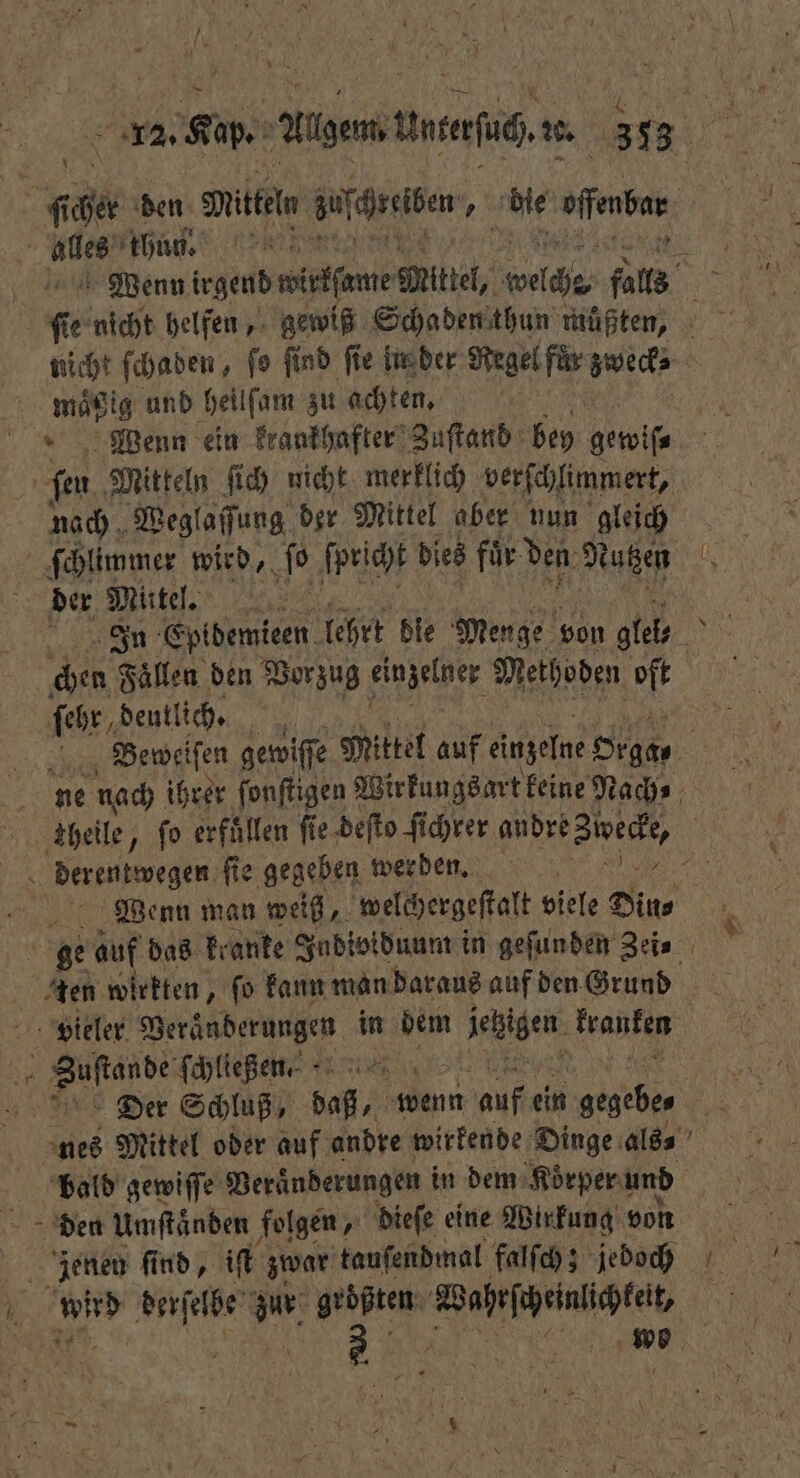 12. Kap. Allgem. Unterſuch. ꝛc. 353
ſicher den Mitteln zuſchreiben, die offenbar
alles thun.
Wenn irgend wirkſame Mittel, welche falls
ſie nicht helfen, gewiß Schaden thun müßten,
nicht ſchaden, ſo ſind ſie in der Regel für zweck⸗
mäßig und heilſam zu achten.
Wenn ein krankhafter Zuſtand bey gewiſ⸗
ſen Mitteln ſich nicht merklich verſchlimmert,
nach Weglaſſung der Mittel aber nun gleich
ſchlimmer wird, ſo ſpricht dies für den Nutzen
der Mittel.
In Epidemieen lehrt die Menge von glei⸗
chen Fällen den Vorzug einzelner Methoden oft
ſehr deutlich.
Beweiſen gewiſſe Mittel auf einzelne Orga⸗
ne nach ihrer ſonſtigen Wirkungsart keine Nach⸗
theile, ſo erfüllen ſie deſto ſichrer andre Zwecke,
derentwegen ſie gegeben werden.
Wenn man weiß, welchergeſtalt viele Din⸗
ge auf das kranke Individuum in geſunden Zei⸗
ten wirkten, ſo kann man daraus auf den Grund
vieler Veränderungen in dem jetzigen kranken
Zuſtande ſchließen.
Der Schluß, daß, wenn auf ein gegebe⸗
nes Mittel oder auf andre wirkende Dinge als⸗
bald gewiſſe Veränderungen in dem Körper und
den Umſtänden folgen, dieſe eine Wirkung von
jenen ſind, iſt zwar tauſendmal falſch; jedoch
wird derſelbe zur größten Wahrſcheinlichkeit,
Z wo